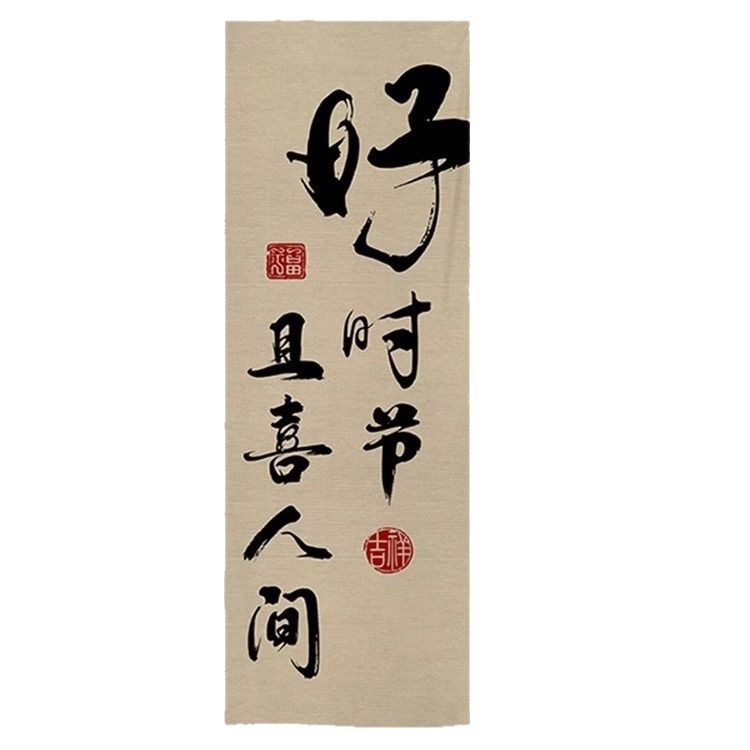 好时节
吉祥
福
且喜人间